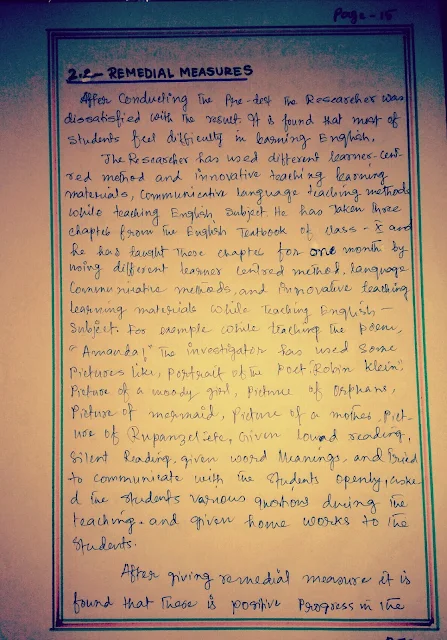 Page - 15
2.2- REMEDIAL MEASURES
After Conducting The Pre-test The Researcher was
dissatisfied with The result. It is found that most of
Students feel difficulty in learning English.
The Researcher has used different learner-Cent-
red method and innovative teaching learning
materials, Communicative language teaching methods
while teaching English Subject. He has Taken Three
chapters from The English Textbook of class - X and
he has taught These chapters for one month by
using different learner Centred method, language
Communicative methods, and Innovative teaching
learning materials while Teaching English -
Subject. For example while teaching The poem,
"Amanda!" The investigator has used Some
Pictures like, portrait of The Poet "Robin Klein",
Picture of a moody girl, Picture of Orphans,
Picture of mermaid, Picture of a mother, Pict-
ure of Rupanzel etc, Given loud reading,
Silent Reading, given word Meanings, and Tried
to communicate with The Students openly, aske-
d The Students various questions during The
teaching. and given home works to The
Students.
After giving remedial measure it is
found that There is positive Progress in The